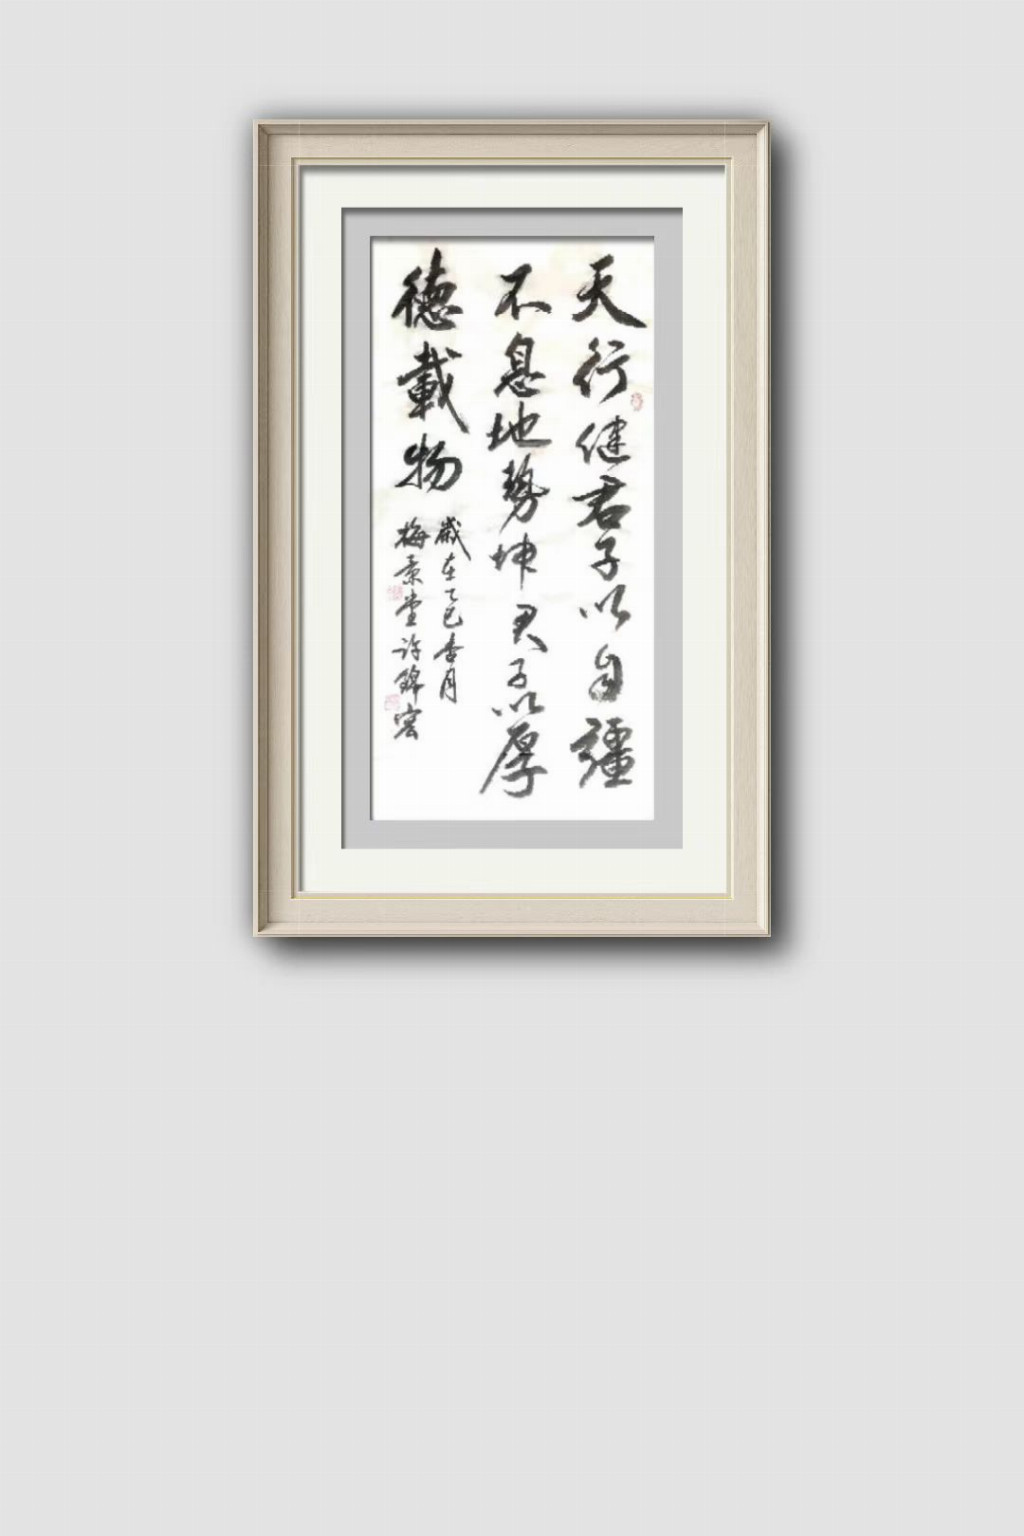 天行健君子以自彊
不息地势坤君子以厚
德載物
歲在乙巳杏月
梅景堂许錦宏